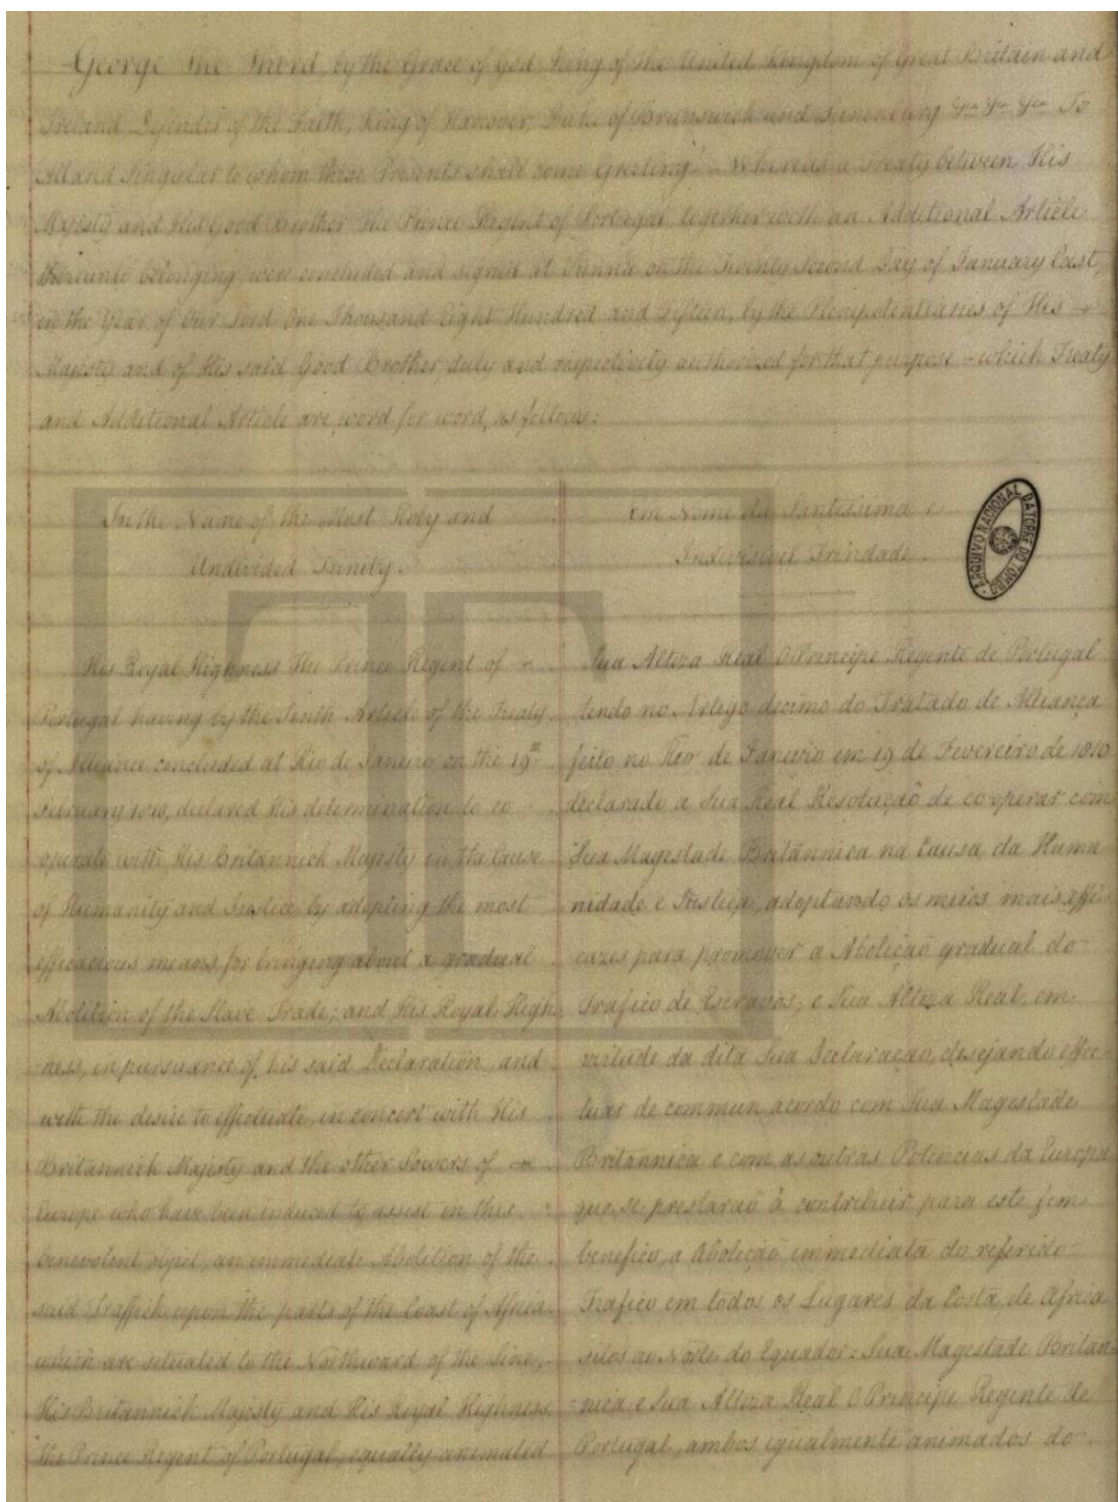 George the Third, by the Grace of God King of the United Kingdom of Great Britain and
Ireland Defender of the Faith, King of Hanover, Duke of Brunswick and Lunenburg &ca &ca &ca To
All and Singular to whom these Presents shall come Greeting! – Whereas a Treaty between His
Majesty and His Good Brother The Prince Regent of Portugal together with an Additional Article
thereunto belonging, were concluded and signed at Vienna on the Twenty Second Day of January last,
in the Year of Our Lord One Thousand Eight Hundred and Fifteen, by the Plenipotentiaries of His
Majesty and of His said Good Brother, duly and respectively authorized for that purpose – which Treaty
and Additional Article are, word for word, as follows:
In the Name of the Most Holy and
Undivided Trinity.
His Royal Highness The Prince Regent of
Portugal having by the Tenth Article of the Treaty
of Alliance concluded at Rio de Janeiro on the 19th
February 1810, declared His determination to co
operate with His Britannick Majesty in the Cause
of Humanity and Justice by adopting the most
efficacious means for bringing about a gradual
Abolition of the Slave Trade; and His Royal High
ness, in pursuance of his said Declaration, and
with the desire to effectuate, in concert with His
Britannick Majesty and the other Powers of
Europe who have been induced to assist in this
benevolent object, an immediate Abolition of the
said Traffick upon the parts of the Coast of Africa
which are situated to the Northward of the Line,
His Britannick Majesty and His Royal Highness
the Prince Regent of Portugal, equally animated
Em Nome da Santissima e
Indivisivel Trindade.
Sua Alteza Real O Principe Regente de Portugal
tendo no Artigo decimo do Tratado de Alliança
feito no Rio de Janeiro em 19 de Fevereiro de 1810
declarado a Sua Real Resolução de cooperar com
Sua Magestade Britannica na Causa da Huma
nidade e Justiça, adoptando os meios mais effi
cazes para promover a Abolição gradual do
Trafico de Escravos; e Sua Alteza Real, em
virtude da dita Sua Declaração, desejando effec
tuar de commun acordo com Sua Magestade
Britannica e com as outras Potencias da Europa
que se prestaraõ à contribuir para este fim
benefico, a Abolição immediata do referido
Trafico em todos os Lugares da Costa de Africa
sitos ao Norte do Equador: Sua Magestade Britan
nica, e Sua Alteza Real O Principe Regente de
Portugal, ambos igualmente animados do
ARQUIVO NACIONAL DA TORRE DO TOMBO
TT